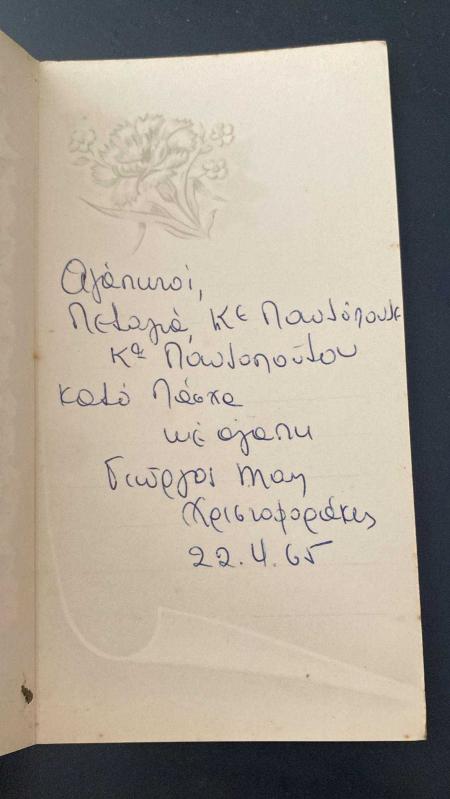 Αγάπητοί,
Πεταγιά, Κε Παυτόπουλε
Κα Παυτοπούλου
καλό Πάσχα
με αγάπη
Γιώργος
Χριστοφοράκης
22.4.65